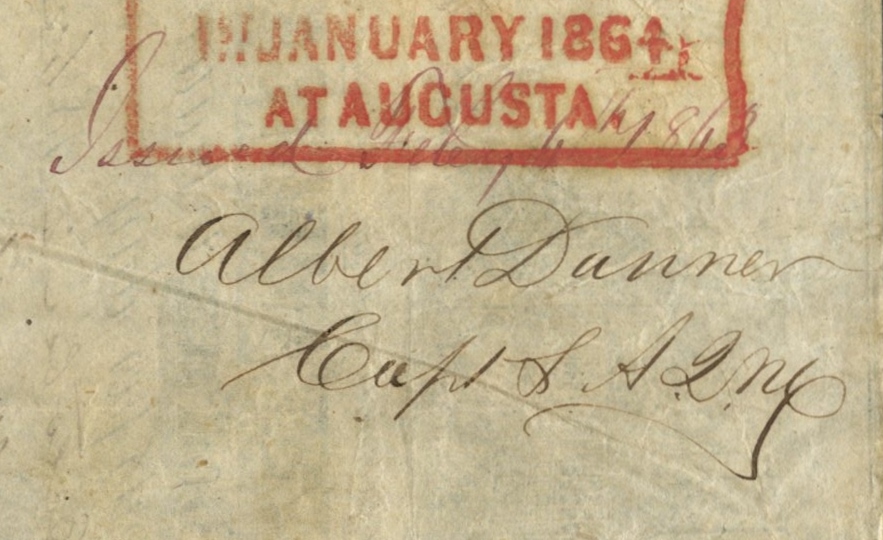 JANUARY 1864
AT AUGUSTA
Issued Feby 6th 1863
Albert Danner
Capt & A.Q.M.